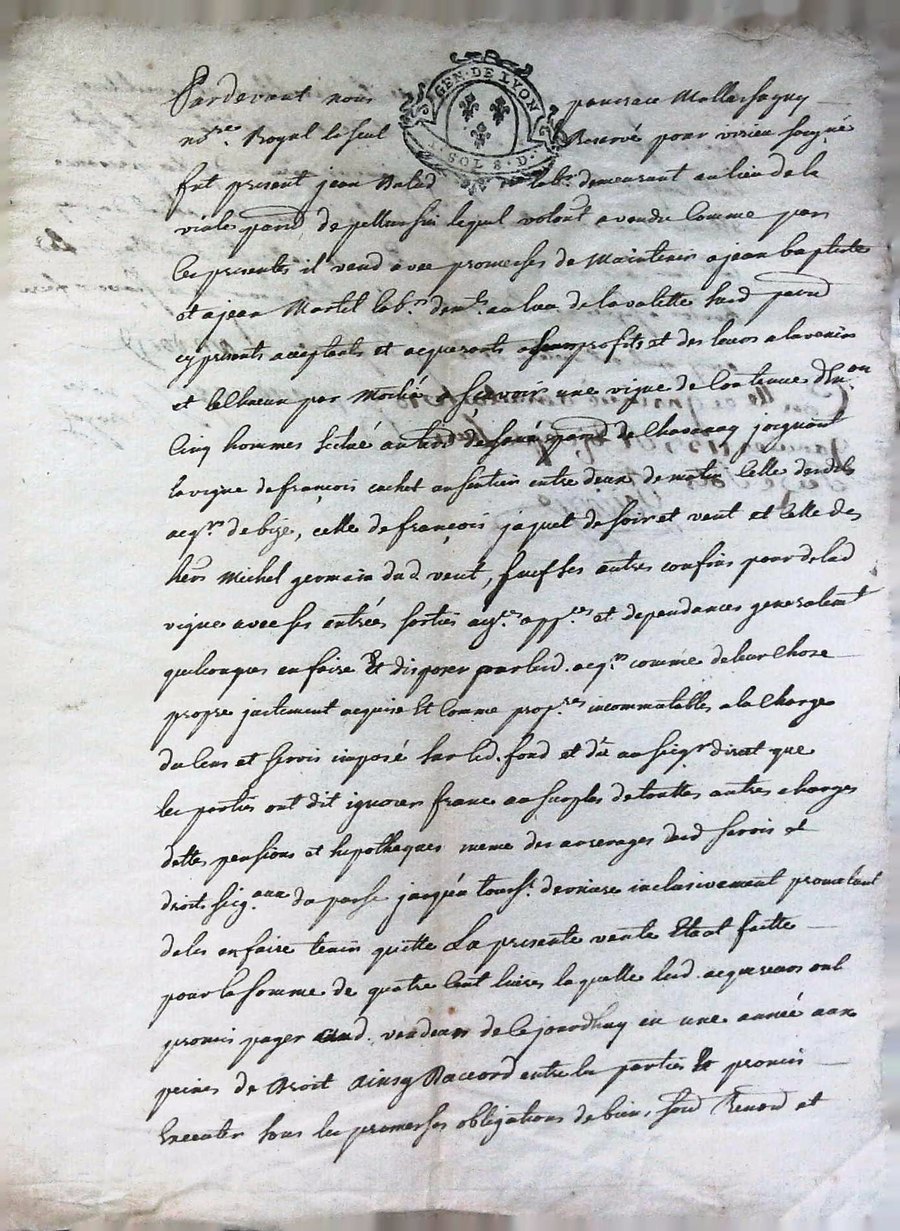 GEN·DE LYON
1·SOL 8·D·
Pardevant nous pancrace Mallassagny
no.re Royal le seul Reservé pour virieu soigné
fut present jean Balad lab.r demeurant au lieu de la
viale paroi.. de pellussin lequel volont. a vendu Comme par
Ces presentes il vend avec promesses de Maintenir a jean baptiste
et a jean Martel lab.rs dem.ts au lieu de la valette susd paroi..
cy presents acceptants et acquerants a leurs profits et des leurs a lavenir
et Chacun par Moitié a sçavoir une vigne de Contenue d'Env.on
Cinq hommes scitué au teroi.. paroi.. de Chavanay joignant
la vigne de françois cachet un sentier entre deux de matin Celle desdits
acq.rs de bize, celle de françois jaquet de soir et vent et Celle des
hers Michel germain dud. vent, sauf ses autres confins pour delad
vigne avec ses entrées sorties ays.ces app.ces et dependances generalem.t
quelconques en faire Et disposer par lesd. acq.rs comme de leur Chose
propre justement acquise Et Comme prop.res incommutables a la Charge
du Cens et servis imposé sur led. fond et dû au seig.r direct que
les parties ont dit ignorer franc au surplus de touttes autres charges
dettes pensions et hipotheques meme des arrerages dud servis et
droits seig.aux du passé jusqu'a touss.t derniere inclusivement promettant
de les en faire tenir quitte La presente vente Etant faitte
pour la somme de quatre Cent livres laquelle lesd. acquereurs ont
promis payer aud. vendeur de Cejourdhuy en une année aux
peines de Droit Ainsy Daccord entre les parties Et promis
Executer sous les promesses obligations de biens, soud Renond et